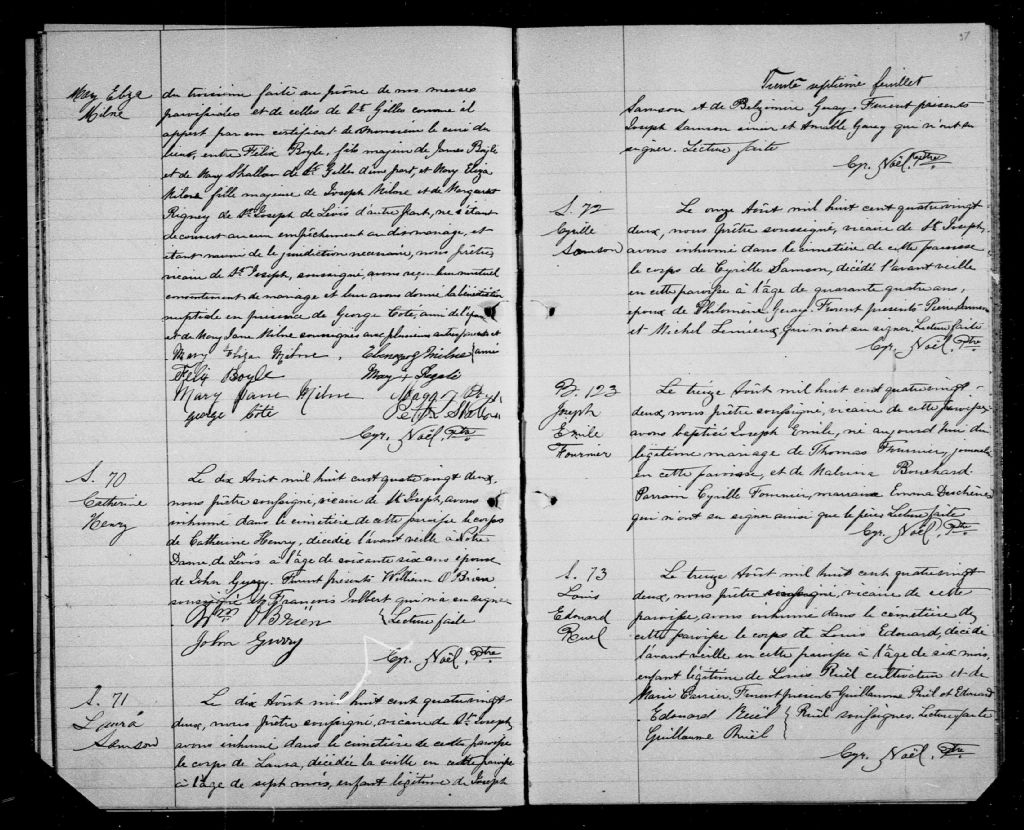 Mary Eliza
Milne
du troisième faite au prône de nos messes
paroissiales et de celles de St Gilles comme il
appert par un certificat de Monsieur le curé du
lieu, entre Félix Boyle, fils majeur de James Boyle
et de Mary Shallow de St Gilles d'une part, et Mary Eliza
Milne fille majeure de Joseph Milne et de Margaret
Rigney de St Joseph de Lévis d'autre part, ne s'étant
découvert aucun empêchement au dit mariage, et
étant munis de la juridiction nécessaire, nous prêtre,
vicaire de St Joseph, soussigné, avons reçu leur mutuel
consentement de mariage et leur avons donné la bénédiction
nuptiale en présence de George Cote, ami de l'époux
et de Mary Jane Milne soussignés avec plusieurs autres parents et
Mary Eliza Milne, Milne amis
Felix Boyle Mary
Mary Jane Milne
george Cote
Cyr. Noël, Ptre
S. 70
Catherine
Henry
Le dix Août mil huit cent quatre vingt deux,
nous prêtre soussigné, vicaire de St Joseph, avons
inhumé dans le cimetière de cette paroisse le corps
de Catherine Henry, décédée l'avant veille à Notre
Dame de Lévis à l'âge de soixante six ans épouse
de John Gurry. Furent présents William O'Brien
soussigné et François Jalbert qui n'a su signer
Wm O'Brien Lecture faite
John Gurry
Cyr. Noël, Ptre
S. 71
Laura
Samson
Le dix Août mil huit cent quatre vingt
deux, nous prêtre soussigné, vicaire de St Joseph,
avons inhumé dans le cimetière de cette paroisse
le corps de Laura, décédée la veille en cette paroisse
à l'âge de sept mois, enfant légitime de Joseph
37
Trente septième feuillet
Samson et de Belzémire Guay. Furent présents
Joseph Samson et Amable Guay qui n'ont su
signer. Lecture faite
Cyr. Noël, Ptre
S. 72
Cyrille
Samson
Le onze Août mil huit cent quatre vingt
deux, nous prêtre soussigné, vicaire de St Joseph,
avons inhumé dans le cimetière de cette paroisse
le corps de Cyrille Samson, décédé l'avant veille
en cette paroisse à l'âge de quarante quatre ans,
époux de Philomène Guay. Furent présents Pierre Samson
et Michel Lemieux qui n'ont su signer. Lecture faite
Cyr. Noël, Ptre
B. 123
Joseph
Emile
Fournier
Le treize Août mil huit cent quatre vingt
deux, nous prêtre soussigné, vicaire de cette paroisse
avons baptisé Joseph Emile, né aujourd'hui du
légitime mariage de Thomas Fournier, journalier
en cette paroisse, et de Malvina Bouchard
Parrain Cyrille Fournier, marraine Emma Deschênes
qui n'ont su signer ainsi que le père Lecture faite
Cyr. Noël, Ptre
S. 73
Louis
Edouard
Ruel
Le treize Août mil huit cent quatre vingt
deux, nous prêtre soussigné, vicaire de cette
paroisse, avons inhumé dans le cimetière de
cette paroisse le corps de Louis Edouard, décédé
l'avant veille en cette paroisse à l'âge de six mois,
enfant légitime de Louis Ruël cultivateur et de
Marie Carrier. Furent présents Guillaume Ruël et Edouard
Edouard Ruël Ruël soussignés. Lecture faite
Guillaume Ruël
Cyr. Noël, Ptre